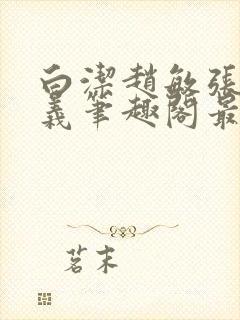 白潔趙敏張
義筆趣閣最
茗末